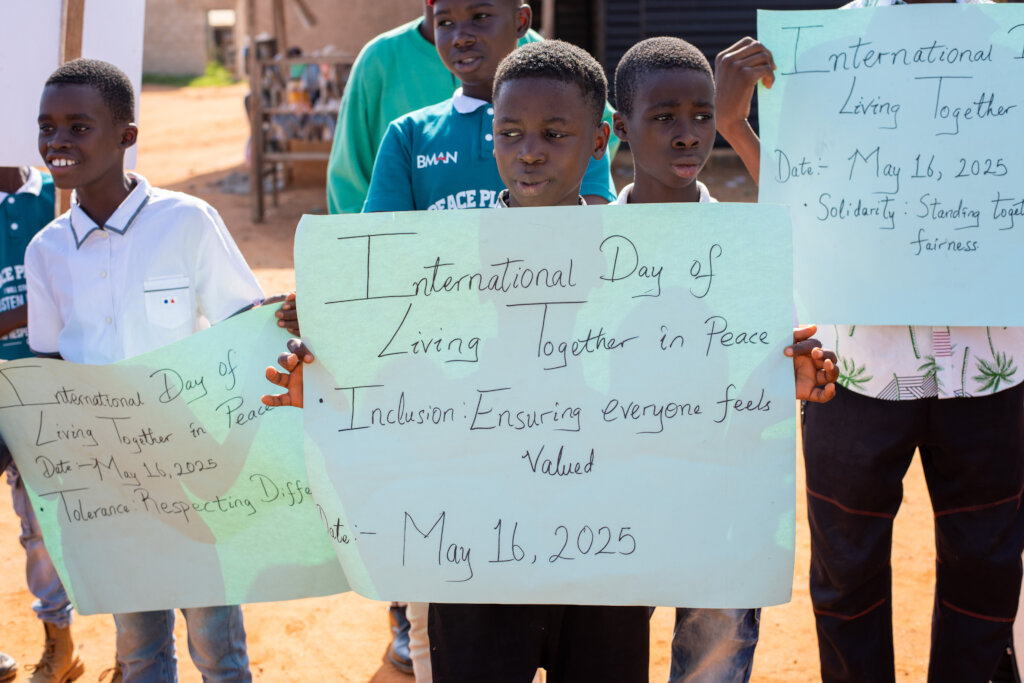 International Day of
Living Together in Peace
Date:- May 16, 2025
Tolerance: Respecting Diffe
International Day of
Living Together in Peace
• Inclusion: Ensuring everyone feels
Valued
Date:- May 16, 2025
International D
Living Together
Date:- May 16, 2025
• Solidarity: Standing toget
fairness
BMAN
PEACE